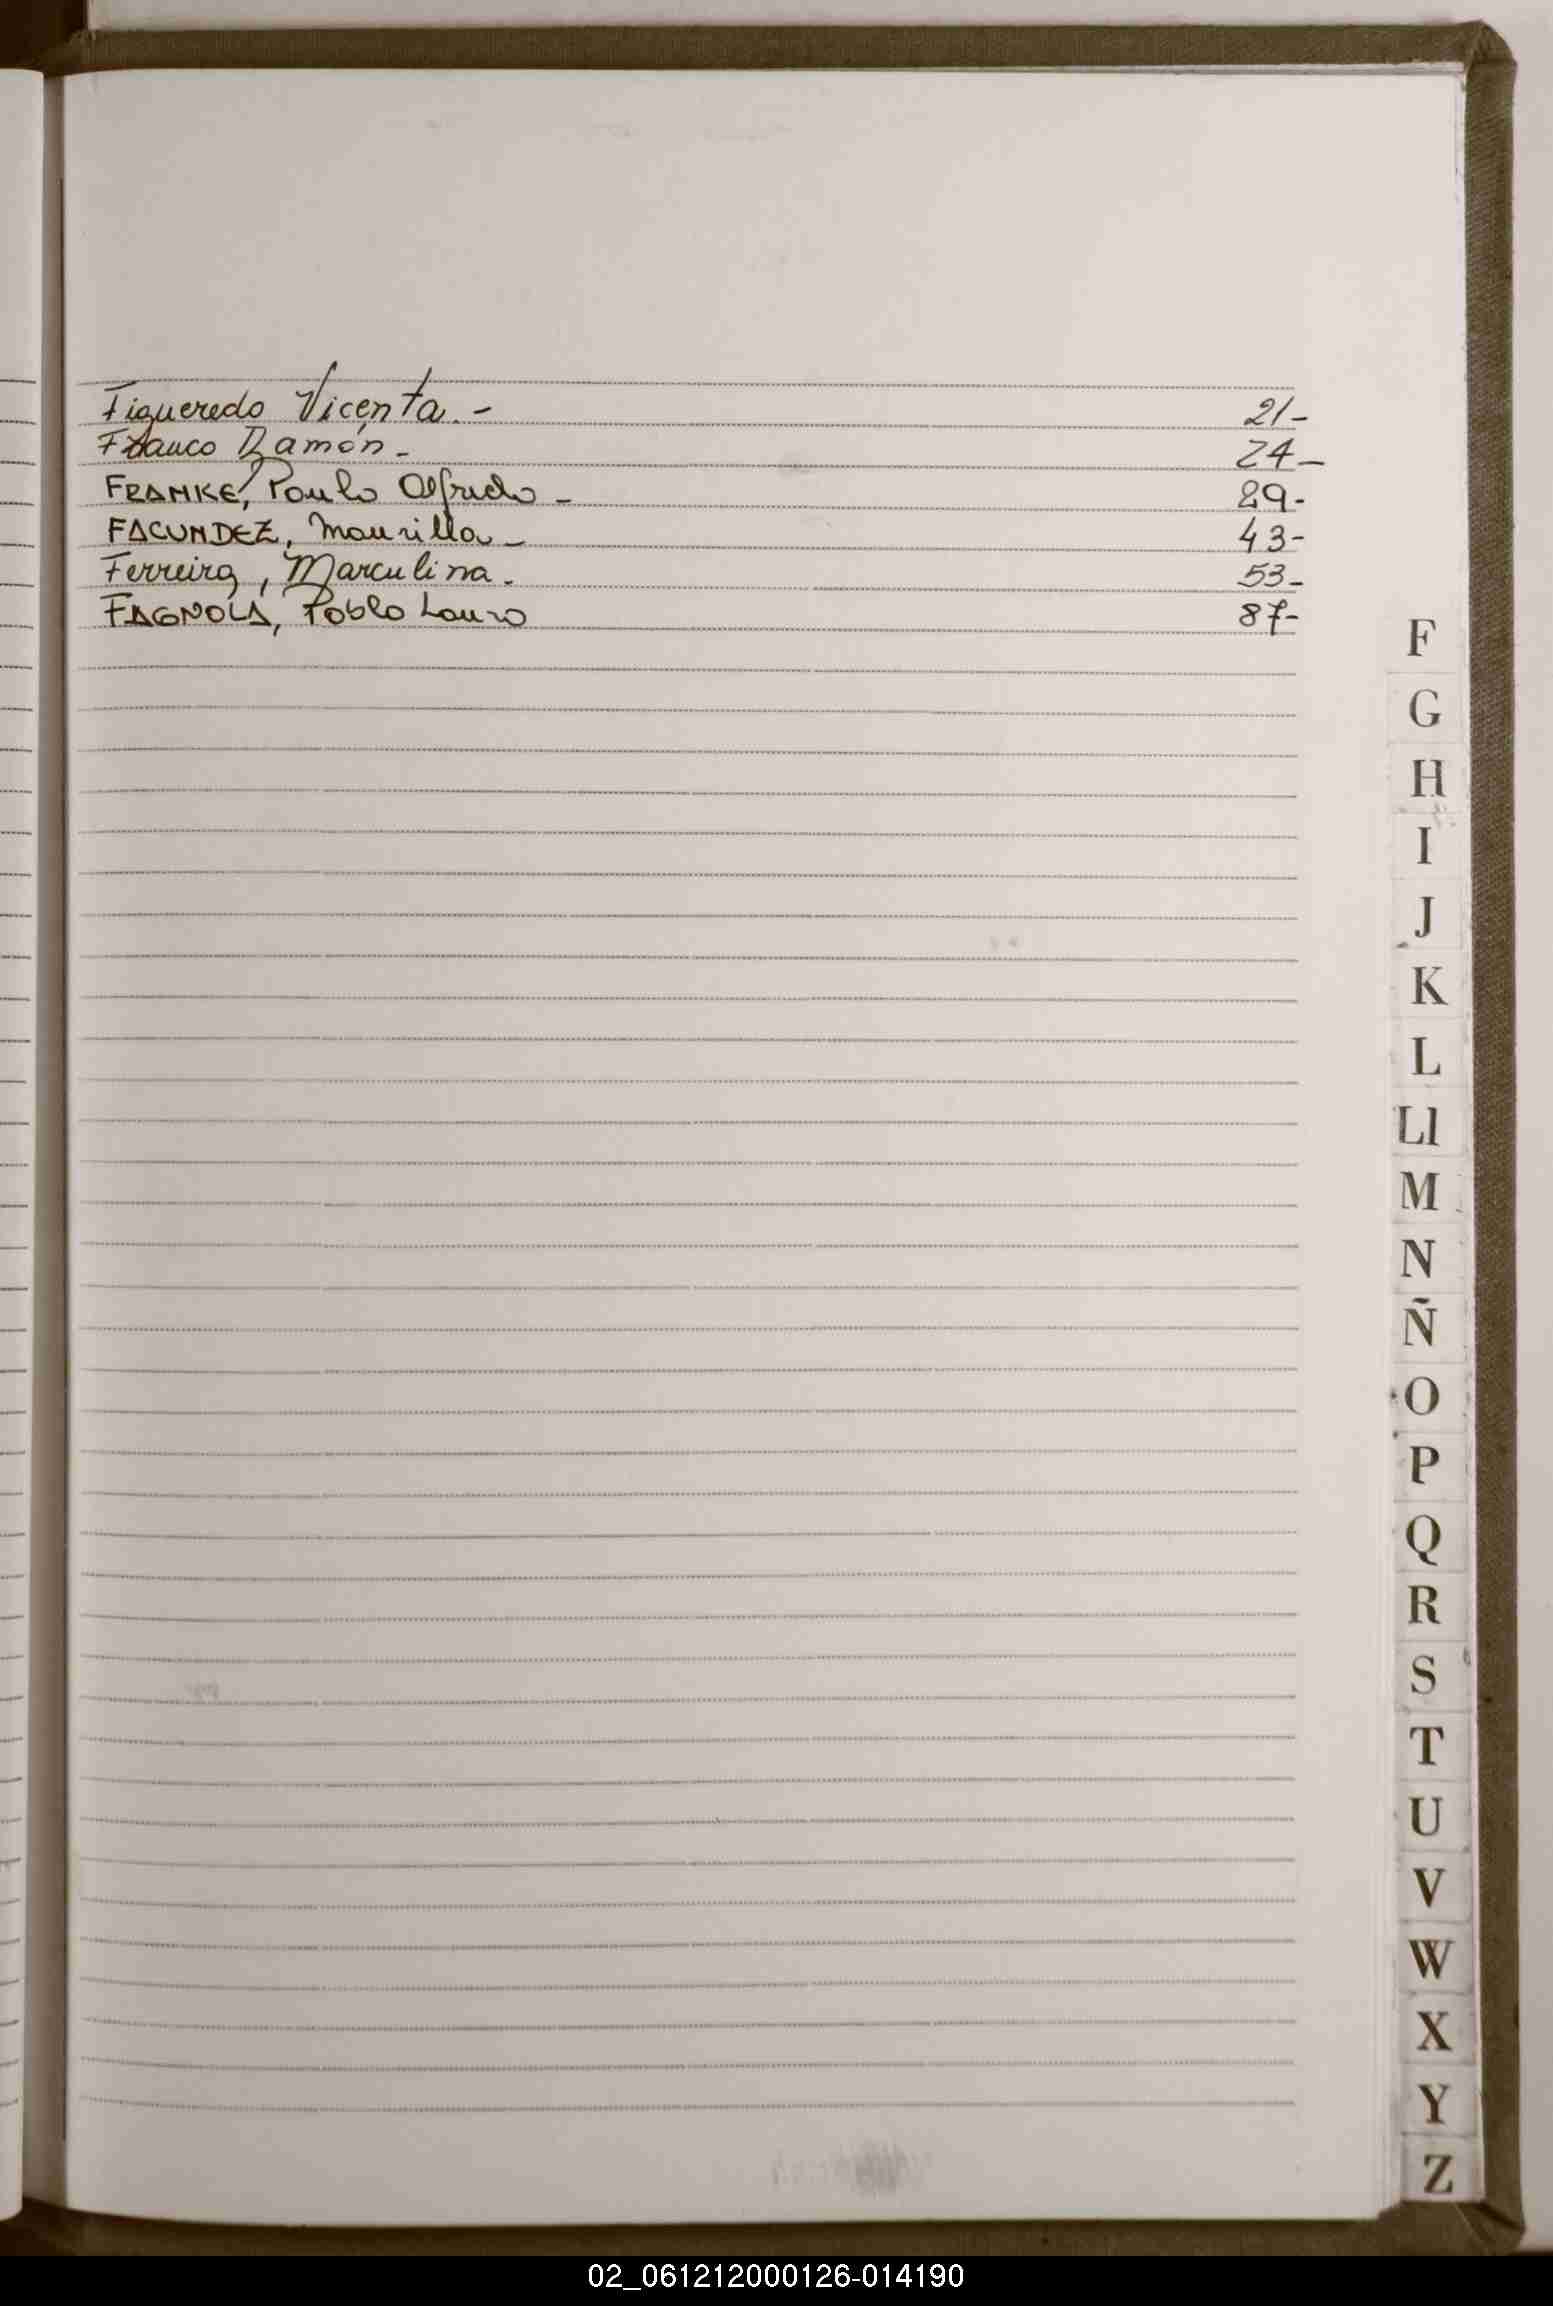 Figueredo Vicenta.- 21-
Franco Ramón.- 24-
FRANKE, Paulo Alfredo - 29-
FACUNDEZ, Maurilla - 43-
Ferreira, Marculina. 53-
FAGNOLA, Pablo Lauro 87-
F
G
H
I
J
K
L
Ll
M
N
Ñ
O
P
Q
R
S
T
U
V
W
X
Y
Z
02_061212000126-014190